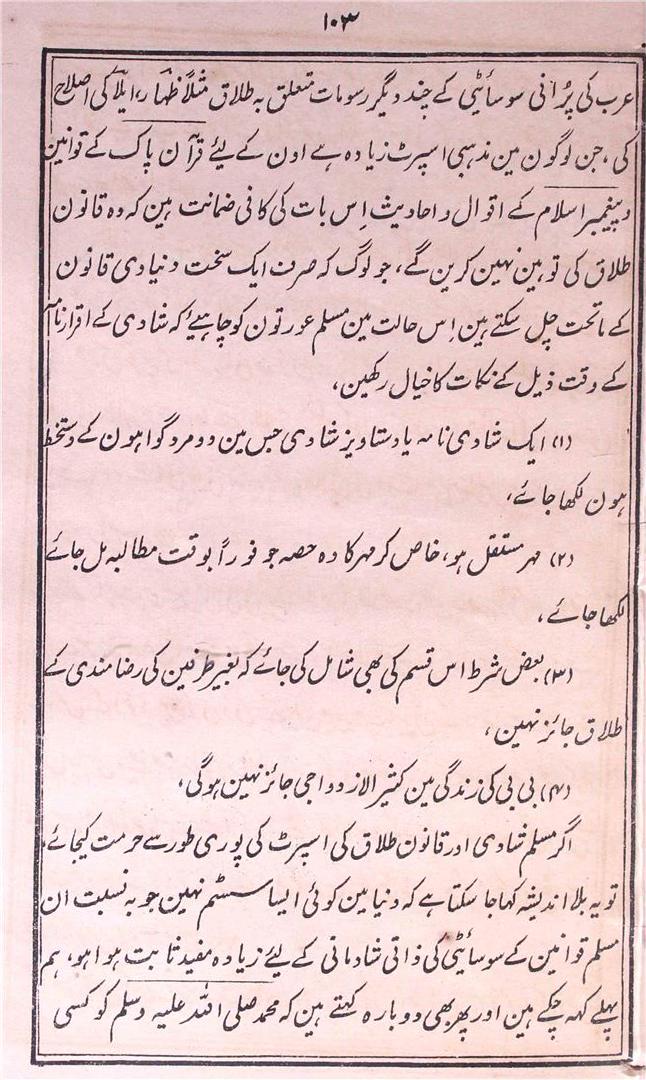 ۱۰۳
عرب کی پُرانی سوسائیٹی کے چند دیگر رسومات متعلق بہ طلاق مثلاً ظہار، ایلاؔ کی اصلاح
کی، جن لوگون مین مذہبی اسپرٹ زیادہ ہے اون کے لیئے قرآن پاک کے قوانین
و پیغمبر اسلام کے اقوال و احادیث اِس بات کی کافی ضمانت ہین کہ وہ قانون
طلاق کی توہین نہین کرین گے، جو لوگ کہ صرف ایک سخت دنیاوی قانون
کے ماتحت چل سکتے ہین اِس حالت مین مسلم عورتون کو چاہیئے کہ شادی کے اقرارنامہ
کے وقت ذیل کے نکات کا خیال رکھین،
(۱) ایک شادی نامہ یا دستاویز شادی جس مین دو مرد گواہون کے دستخط
ہون لکھا جائے،
(۲) مہر مستقل ہو، خاص کر مہر کا وہ حصہ جو فوراً بوقت مطالبہ مل جائے
لکھا جائے،
(۳) بعض شرط اس قسم کی بھی شامل کی جائے کہ بغیر طرفین کی رضامندی کے
طلاق جائز نہین،
(۴) بی بی کی زندگی مین کثیر الازدواجی جائز نہین ہوگی،
اگر مسلم شادی اور قانون طلاق کی اسپرٹ کی پوری طور سے حرمت کیجائے،
تو یہ بلا اندیشہ کہا جا سکتا ہے کہ دنیا مین کوئی ایسا سسٹم نہین جو بہ نسبت ان
مسلم قوانین کے سوسائیٹی کی ذاتی شادمانی کے لیئے زیادہ مفید ثابت ہوا ہو، ہم
پہلے کہہ چکے ہین اور پھر بھی دوبارہ کہتے ہین کہ محمد صلی اللہ علیہ وسلم کو کسی